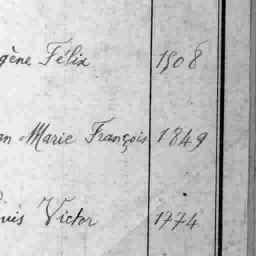 gène Félix 1808
an Marie François 1849
ouis Victor 1774